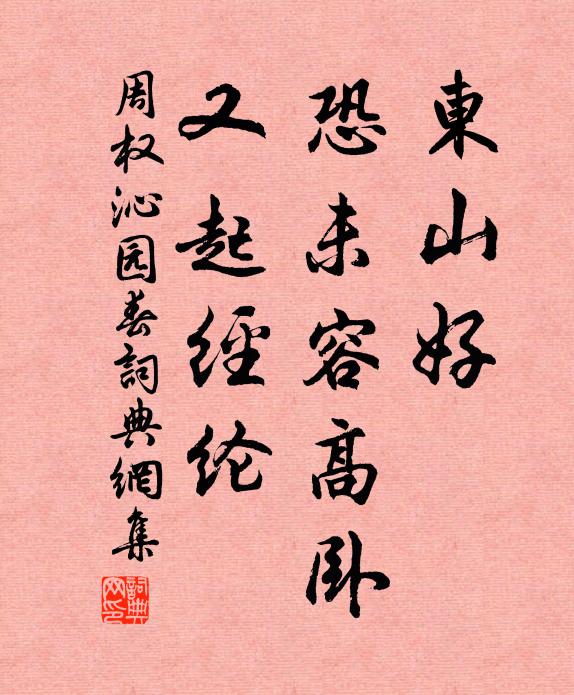 東山好
恐未容高卧
又起經纶
周权沁园春詞典網集
詞典网印